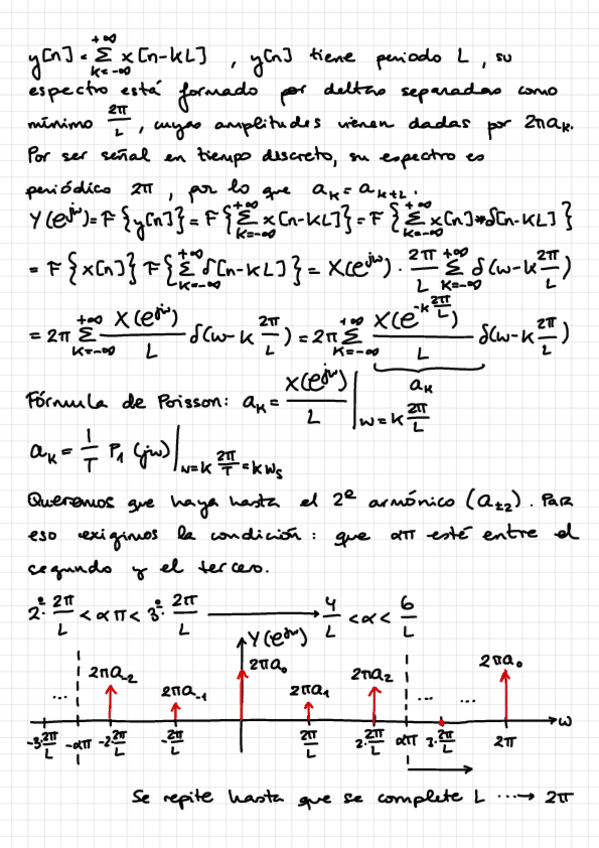 y[n] = Σ_{k=-∞}^{+∞} x[n-kL] , y[n] tiene periodo L, su
espectro está formado por deltas separadas como
mínimo 2π/L , cuyas amplitudes vienen dadas por 2πa_k.
Por ser señal en tiempo discreto, su espectro es
periódico 2π , por lo que a_k = a_{k+L}.
Y(e^{jω}) = F{y[n]} = F{Σ_{k=-∞}^{+∞} x[n-kL]} = F{Σ_{k=-∞}^{+∞} x[n]*δ[n-kL]}
= F{x[n]} F{Σ_{k=-∞}^{+∞} δ[n-kL]} = X(e^{jω}) · 2π/L Σ_{k=-∞}^{+∞} δ(ω-k 2π/L)
= 2π Σ_{k=-∞}^{+∞} X(e^{jω})/L δ(ω-k 2π/L) = 2π Σ_{k=-∞}^{+∞} X(e^{-k 2π/L})/L δ(ω-k 2π/L)
a_k
Fórmula de Poisson: a_k = X(e^{jω})/L |_{ω=k 2π/L}
a_k = 1/T P₁(jω) |_{ω=k 2π/T = kω_s}
Queremos que haya hasta el 2º armónico (a_{±2}). Para
eso exigimos la condición: que απ esté entre el
segundo y el tercero.
2· 2π/L < απ < 3· 2π/L → 4/L < α < 6/L
Y(e^{jω})
2πa_{-2} 2πa_{-1} 2πa_0 2πa_1 2πa_2 2πa_0
... ... ...
-3·2π/L -απ -2·2π/L -2π/L 2π/L 2·2π/L απ 3·2π/L 2π ω
Se repite hasta que se complete L ⋯→ 2π